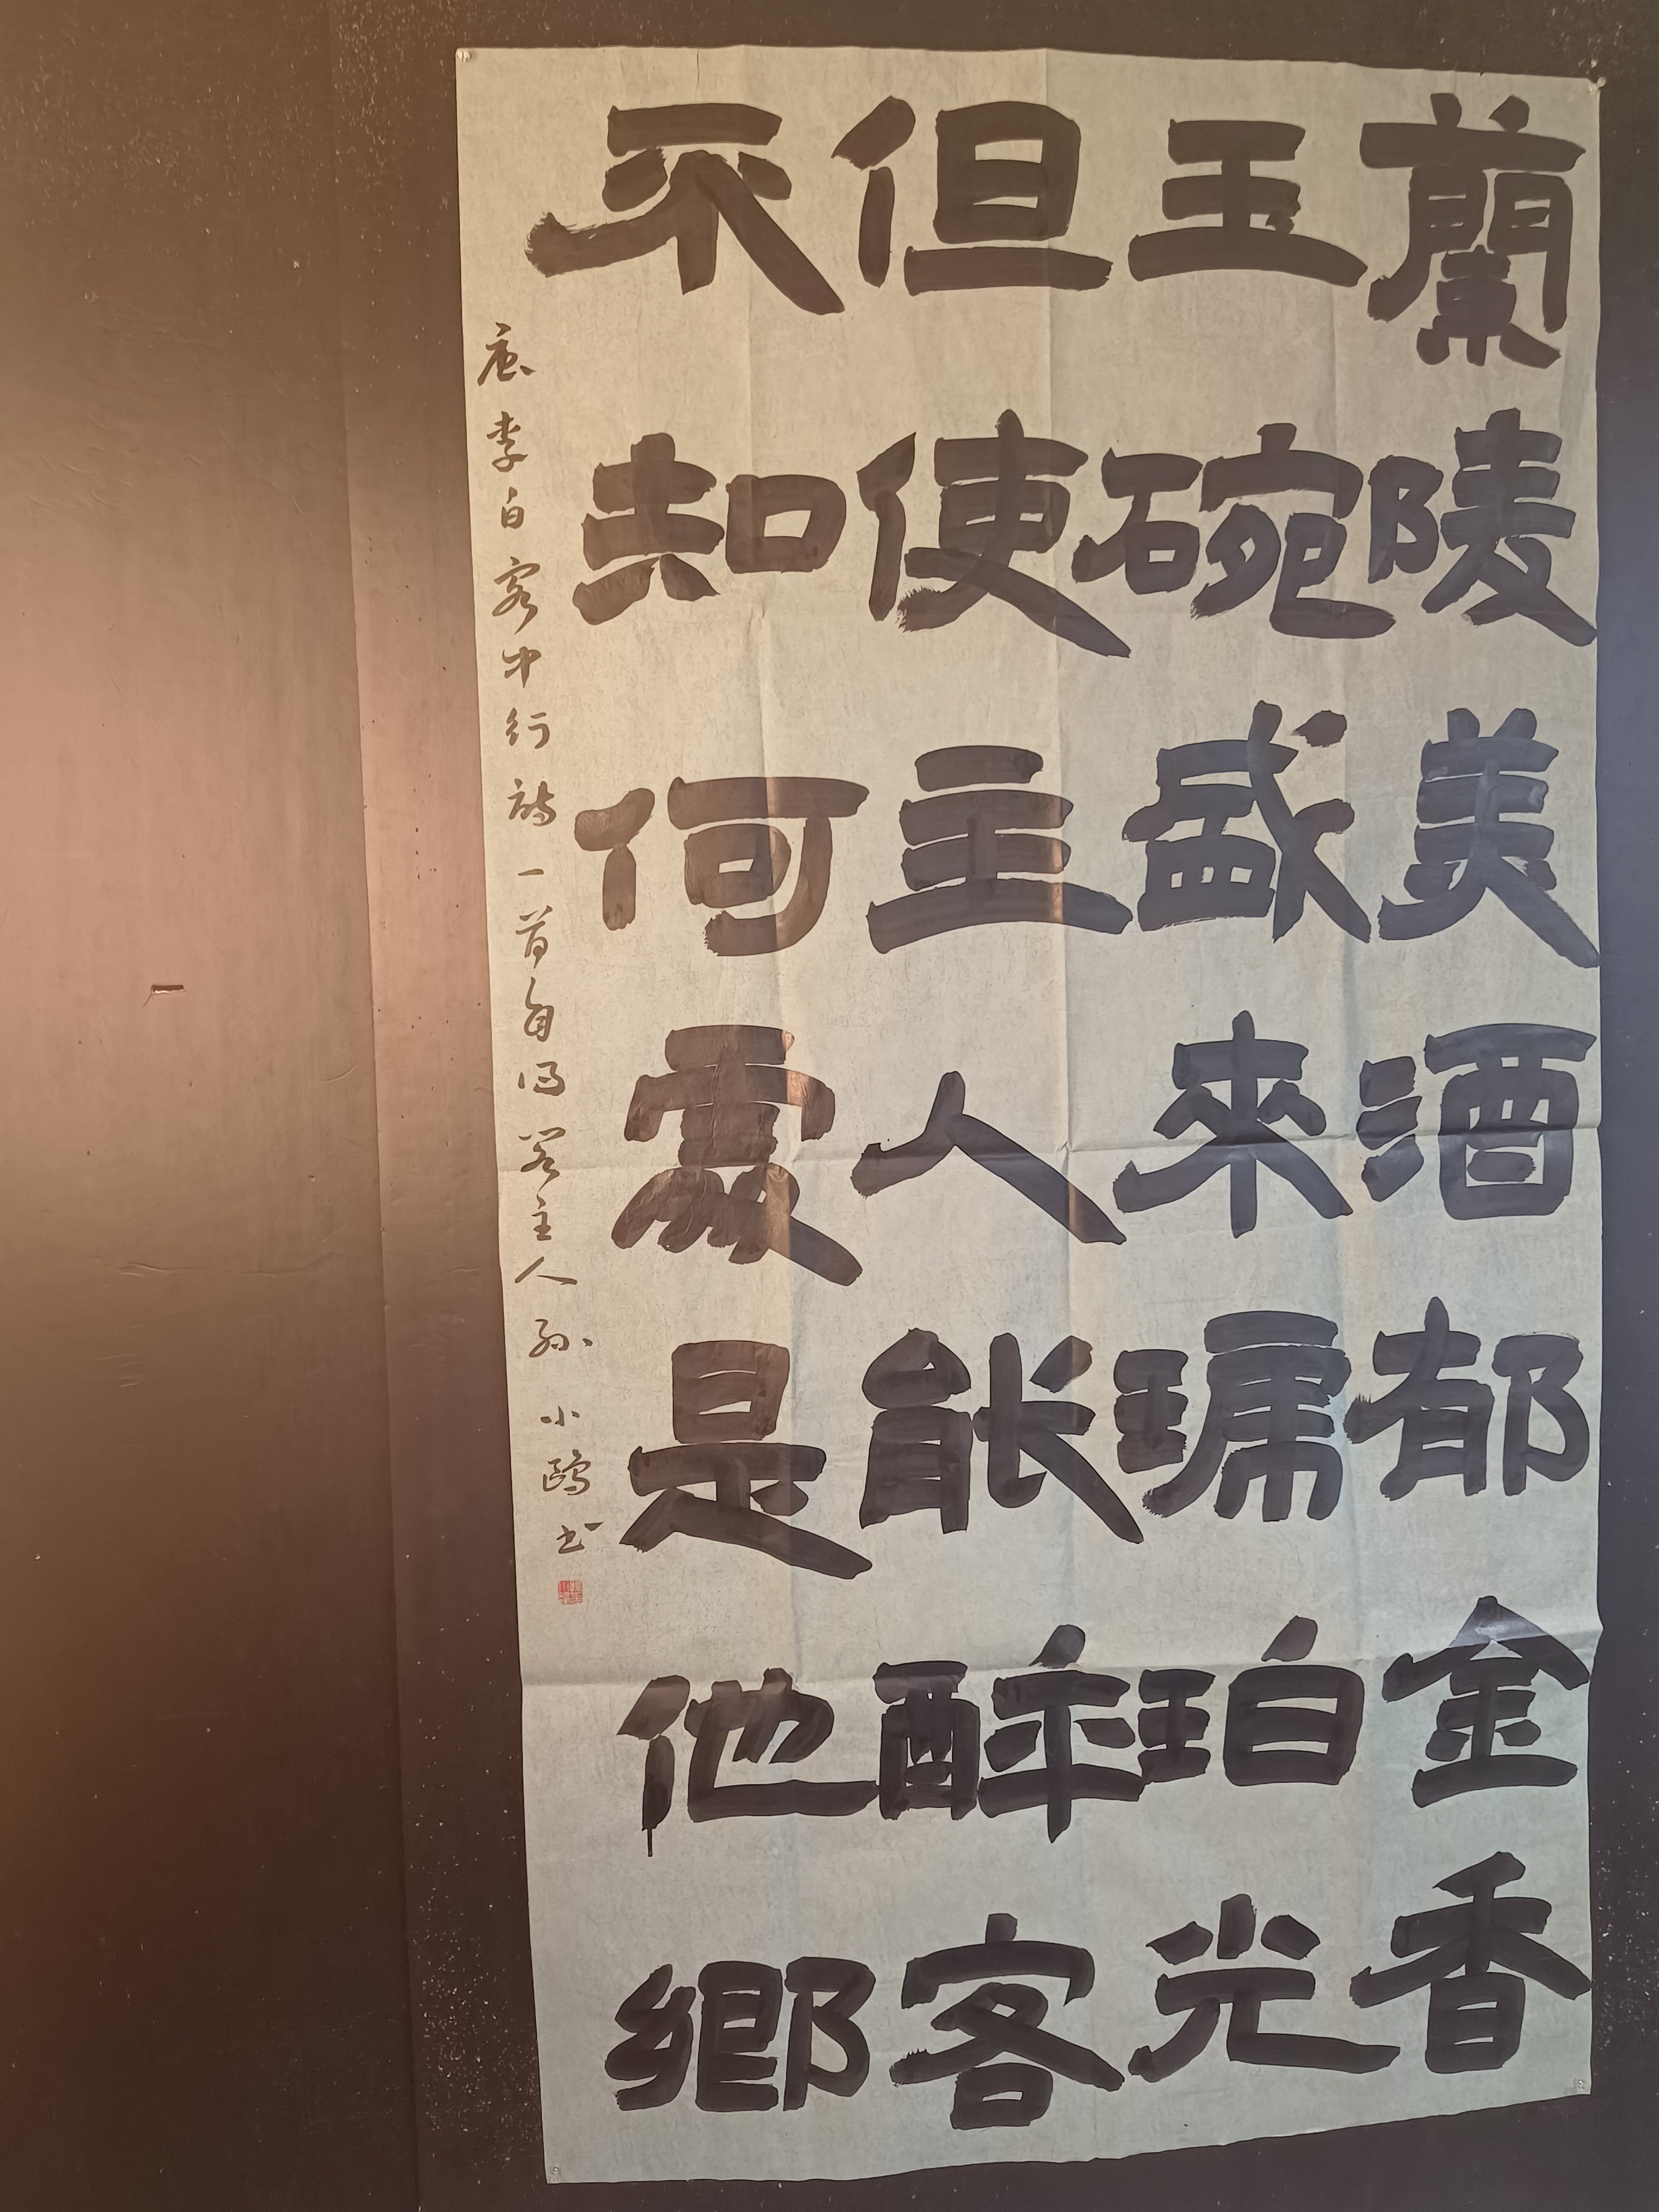 蘭陵美酒郁金香
玉碗盛來琥珀光
但使主人能醉客
不知何處是他鄉
唐李白客中行詩一首自得 主人孙小鷗书